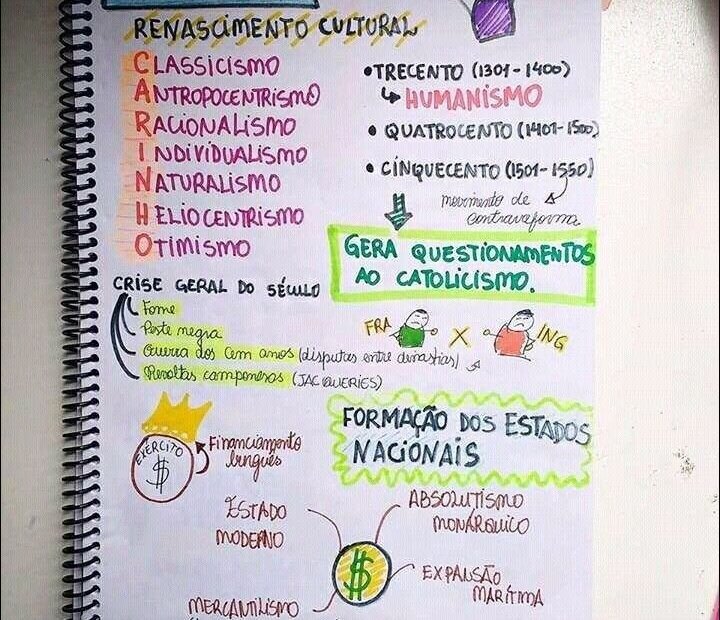 RENASCIMENTO CULTURAL
CLASSICISMO
ANTROPOCENTRISMO
RACIONALISMO
INDIVIDUALISMO
NATURALISMO
HELIOCENTRISMO
OTIMISMO
•TRECENTO (1301-1400)
↳ HUMANISMO
• QUATROCENTO (1401-1500)
• CINQUECENTO (1501-1550)
movimento de
contrareforma
GERA QUESTIONAMENTOS
AO CATOLICISMO.
CRISE GERAL DO SÉCULO
Fome
Peste negra
Guerra dos Cem anos (disputas entre dinastias)
Revoltas camponesas (JACQUERIES)
FRA X ING
EXÉRCITO
$
Financiamento
burguês
FORMAÇÃO DOS ESTADOS
NACIONAIS
ESTADO
MODERNO
ABSOLUTISMO
MONÁRQUICO
$
EXPANSÃO
MARÍTIMA
MERCANTILISMO